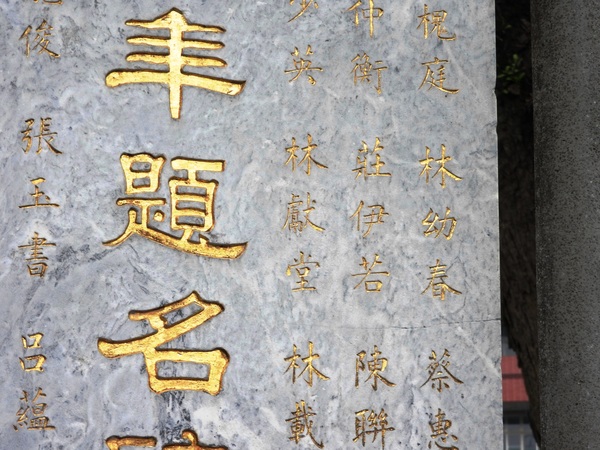 槐庭 林幼春 蔡惠
仲衡 莊伊若 陳聯
少英 林獻堂 林載
年題名
俊 張玉書 呂蘊